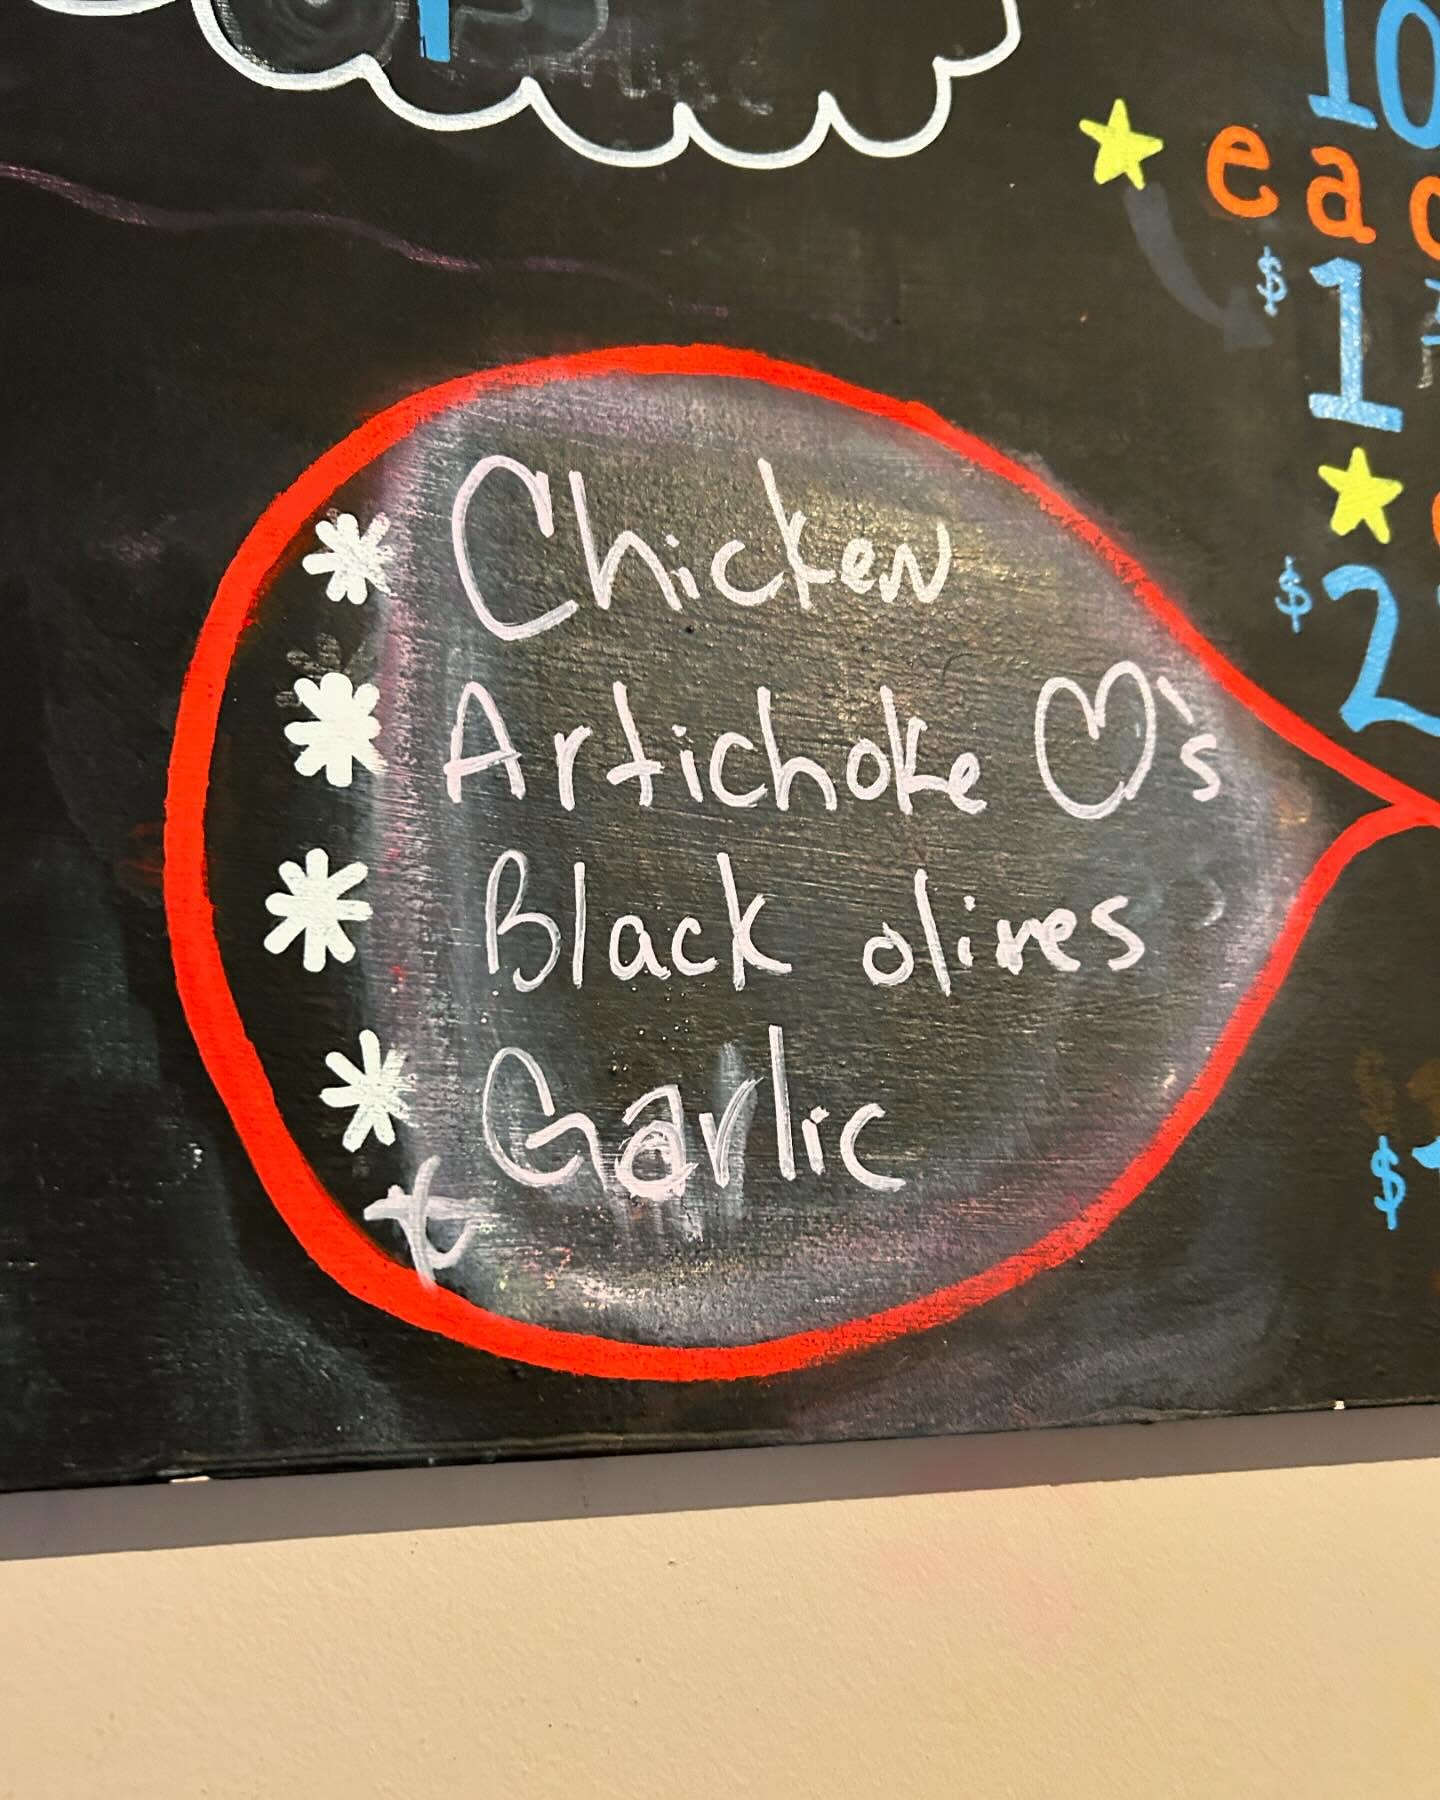 10
eac
$1
$2
* Chicken
* Artichoke ♡'s
* Black olives
* Garlic
$1